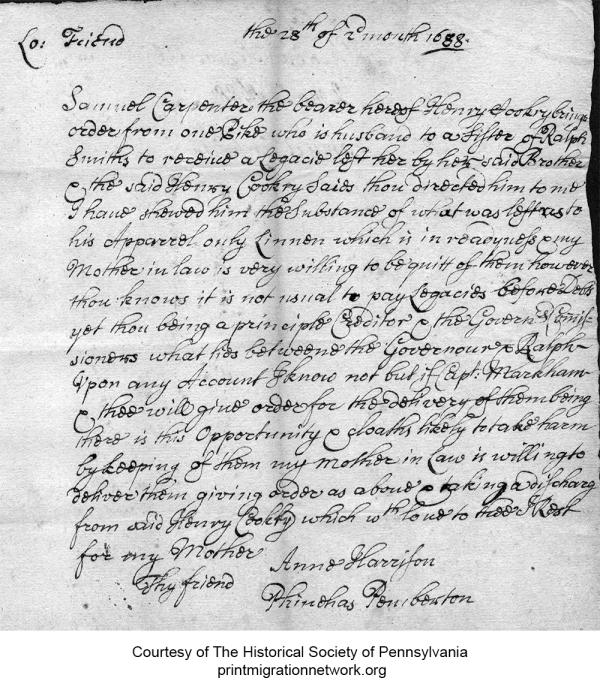 Lo: Friend the 28th of 2d month 1688.
Samuel Carpenter the bearer hereof Henry Cookry brings
order from one Pike who is husband to a Sister of Ralph
Smiths to receive a Legacie left her by her said Brother
& the said Henry Cookry Saies thou directed him to me
I have shewed him the Substance of what was left as to
his Apparrel only Linnen which is in readyness & my
Mother in law is very willing to be quitt of them however
thou knows it is not usual to pay Legacies before Debts
yet thou being a principle Creditor & the Govern
sioners what lies betweene the Governour & Ralph
Upon any Account I know not but if Capt: Markham
& thee will give order for the delivery of them being
there is this Opportunity & cloaths likely to take harm
by keeping of them my Mother in Law is willing to
deliver them giving order as above & taking a discharg
from said Henry Cookry which wth love to thee I Rest
for my Mother Anne Harrison
Thy friend Phinehas Pemberton
Courtesy of The Historical Society of Pennsylvania
printmigrationnetwork.org